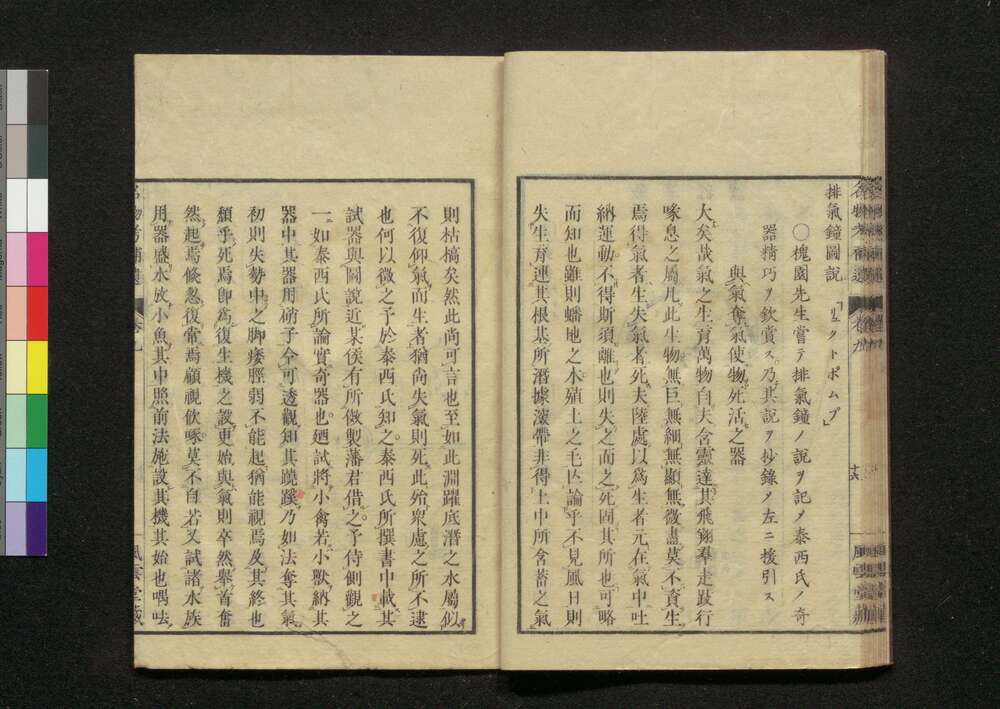 排氣鐘圖說 「リュクトポムプ」
〇槐園先生嘗テ排氣鐘ノ說ヲ記ノ泰西氏ノ奇
器精巧ヲ欽賞ス乃其說ヲ抄錄ノ左ニ援引ス
與氣奪氣使物死活之器
大矣哉氣之生育萬物自夫含靈達其飛翔羣走跂行
喙息之屬凡此生物無巨無細無顯無微盡莫不資生
焉得氣者生失氣者死夫陸處以爲生者元在氣中吐
納運動不得斯須離也則失之而之死固其所也可略
而知也雖則蟠地之木殖土之毛匹論乎不見風日則
失生育連其根基所潛據滾帶非得土中所含蓄之氣
十六
風雲堂藏
則枯槁矣然此尚可言也至如此淵躍底潛之水屬似
不復仰氣而生者猶尚失氣則死此殆衆慮之所不逮
也何以微之予於泰西氏知之泰西氏所撰書中載其
試器與圖說近某侯有所倣製藩君借之予侍側觀之
一如泰西氏所論實奇器也廼試將小禽若小獸納其
器中其器用硝子令可透觀知其蹺蹊乃如法奪其氣
初則失勢中之脚痿脛弱不能起猶能視焉及其終也
頽乎死焉卽爲復生機之設更始與氣則卒然擧首奮
然起焉倏忽復常焉顧視飮啄莫不自若又試諸水族
用器盛水放小魚其中照前法施設其機其始也喁呿
名物考補遺 卷九
風雲堂藏